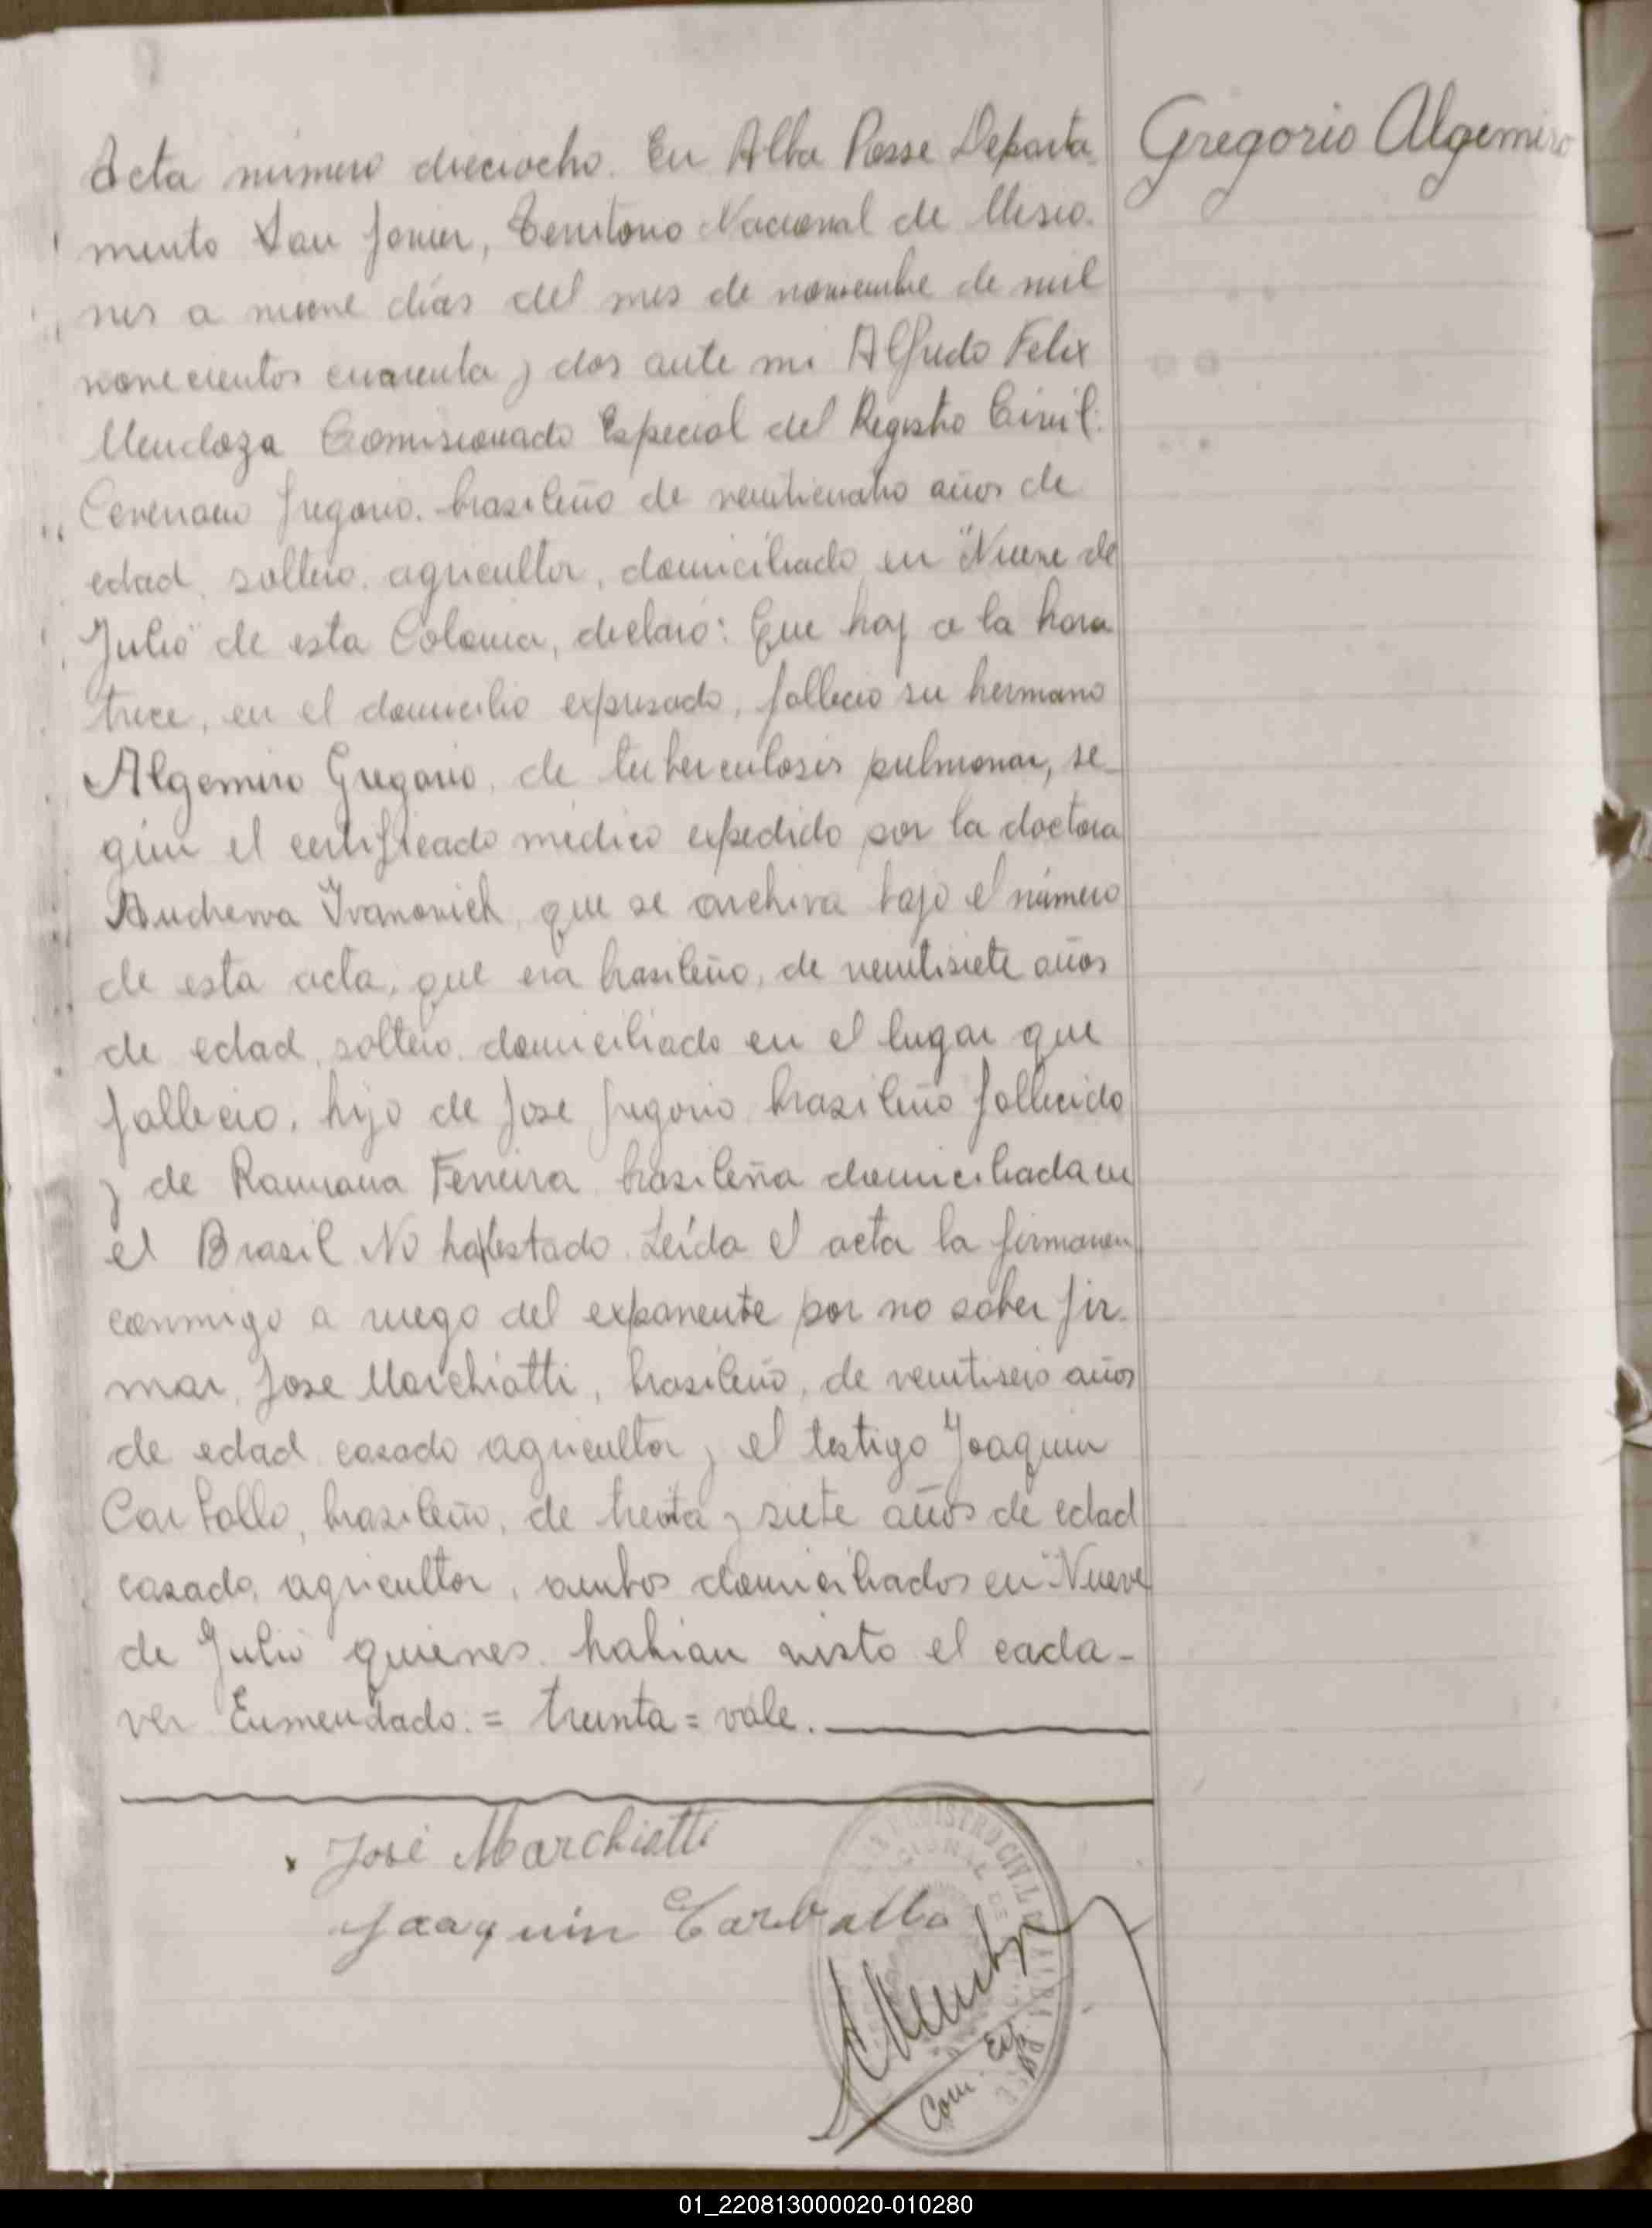 Acta número dieciocho. En Alba Posse Departa
mento San Javier, Territorio Nacional de Misio-
nes a nueve días del mes de noviembre de mil
novecientos cuarenta y dos ante mi Alfredo Felix
Mendoza Comisionado Especial del Registro Civil:
Gregorio. brasileño de veinticuatro años de
edad, soltero, agricultor, domiciliado en "Nueve de
Julio" de esta Colonia, declaró: Que hoy a la hora
trece, en el domicilio expresado, fallecio su hermano
Algemiro Gregorio, de tuberculosis pulmonar, se-
gún el certificado médico expedido por la doctora
Ivanovich, que se archiva bajo el número
de esta acta, que era brasileño, de veintisiete años
de edad, soltero, domiciliado en el lugar que
fallecio, hijo de Jose Gregorio, brasileño fallecido
y de Ferreira brasileña domiciliada en
el Brasil No ha testado. Leída el acta la firmaron
conmigo a ruego del exponente por no saber fir-
mar, Jose Marchiotti, brasileño, de veintiseis años
de edad casado agricultor y el testigo Joaquin
Carballo, brasileño, de treinta y siete años de edad
casado, agricultor, ambos domiciliados en "Nueve
de Julio" quienes habian visto el cada-
ver Enmendado. = treinta = vale.
José Marchiotti
Joaquin Carballo
Com. Esp.
REGISTRO CIVIL
Gregorio Algemiro
01_220813000020-010280